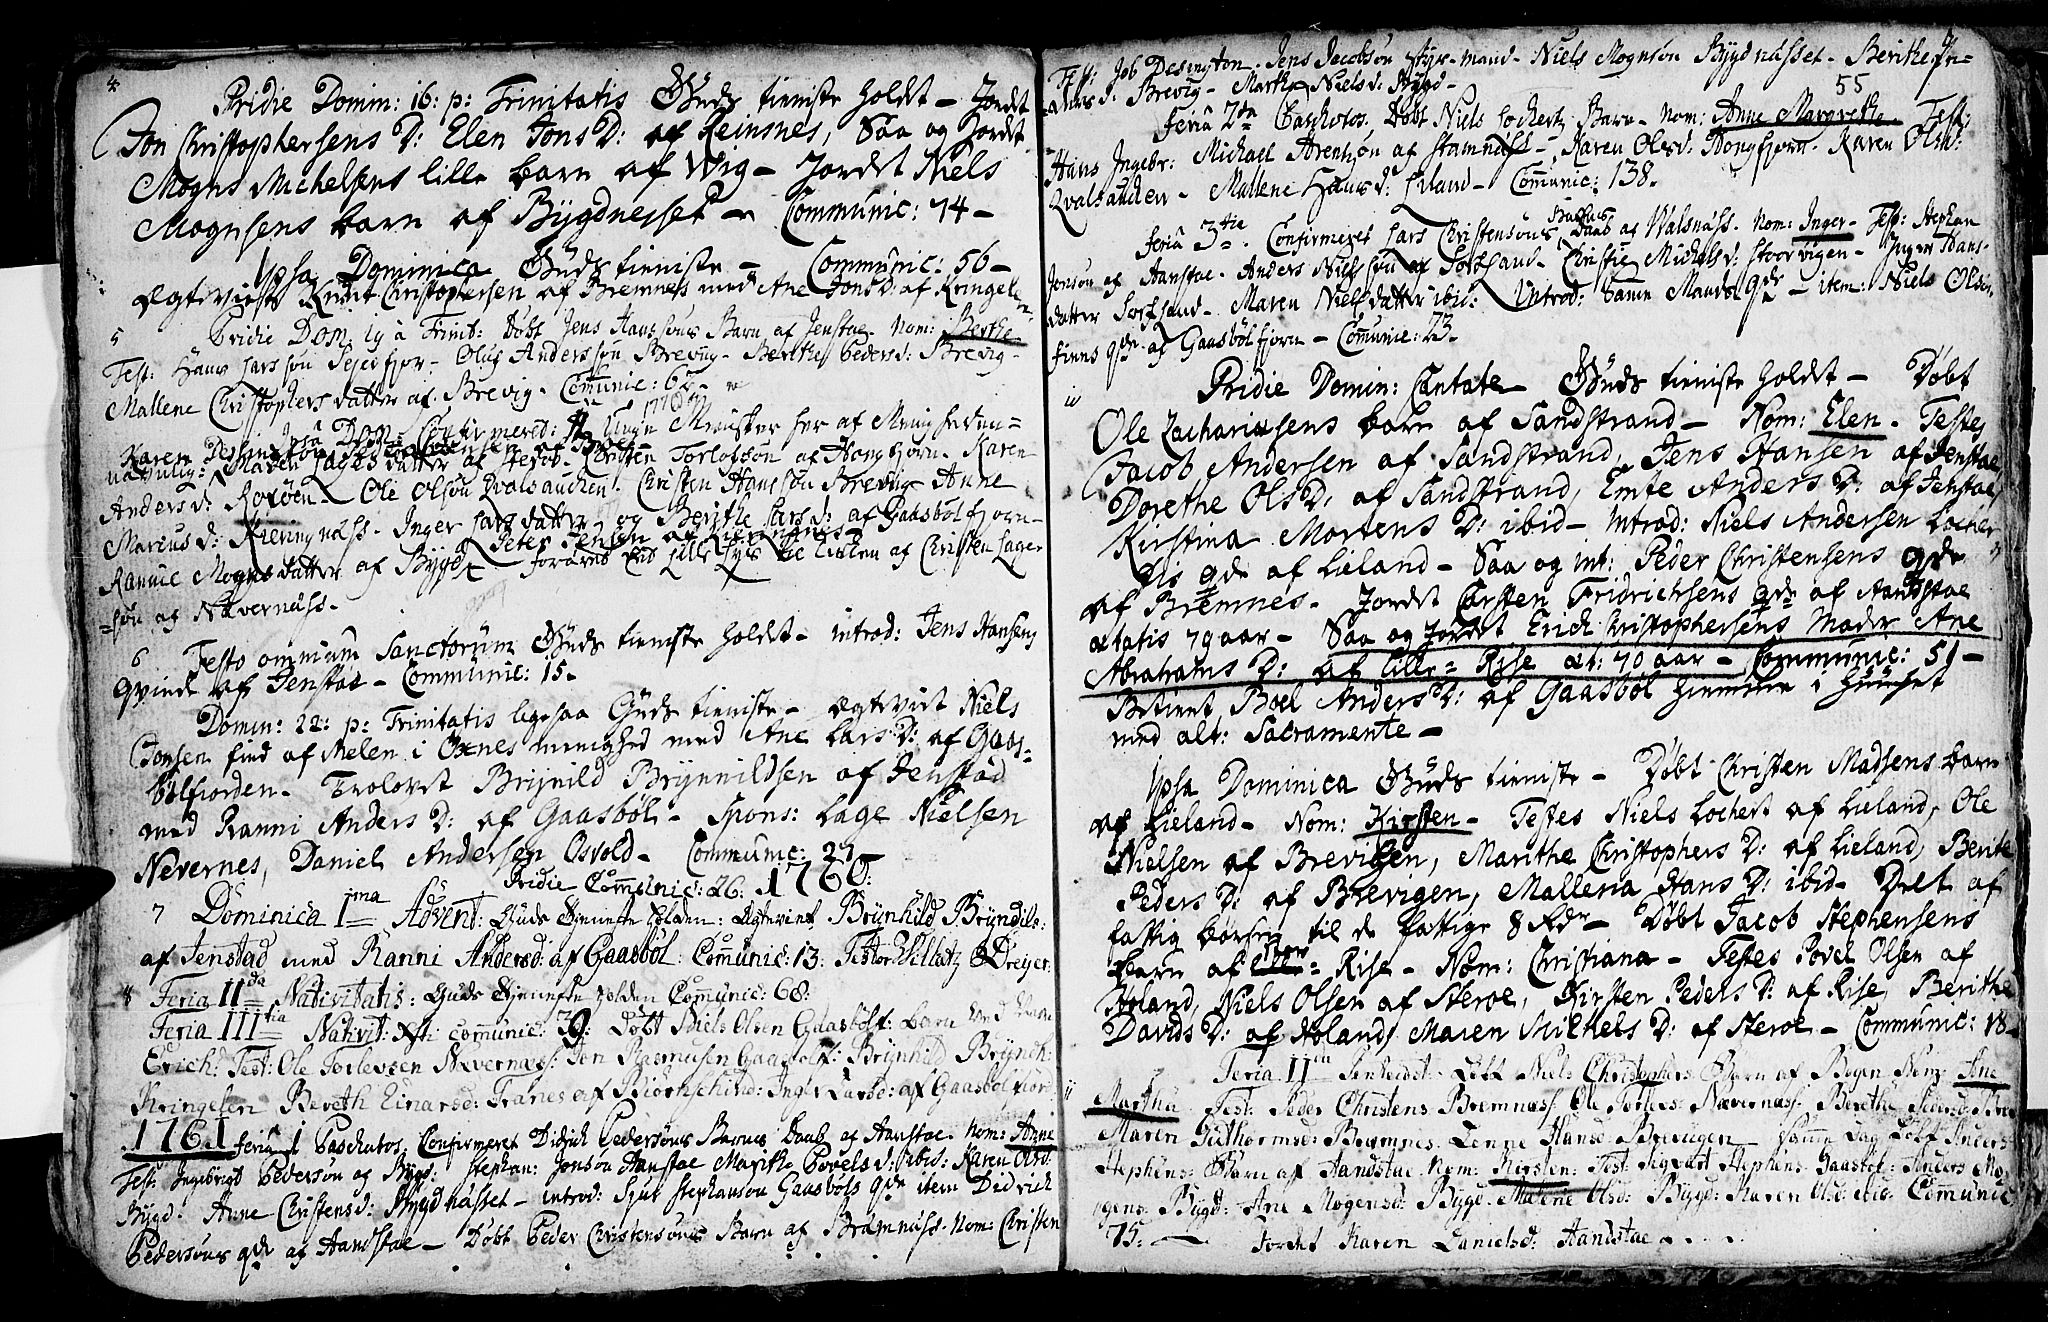 4
Pridie Domin: 16: p: Trinitatis Guds tieniste holdt – Jordet
Jon Christophersens D: Elen Jons D: af Reinsnes, Saa og Jordet
Mogns Michelsens lille barn af Wig – Jordet Niels
Mognsens barn af Bygdnesset – Communic: 74 –
Ipsa Dominica Guds tieniste – Communic: 56 –
Ægteviet Knut Christophersen af Bremness med Ane Jons D: af Kringelen
5 Pridie Dom 19 à Trinit: Døbt Jens Hanssøns Barn af Jenstae. Nom: Berthe
Test: Hans Larssøn Sejerfjor – Oluf Anderssøn Brevig – Berthe Pedersd: Brevig –
Mallene Christophersdatter af Brevig – Comunic: 62
Ipsâ Dom: Confirmered: Unge Menister her af Menigheden
Karen
navnlig: Maren Lagesdatter af Steroe – Christen Torlofsøn af Hongfjorn. Karen
Andersd: Roxøen – Ole Olsøn Qvalsauchen. Christen Hanssøn Brevig Anne
Mariusd: Kieringnæss. Inger Larsdatter og Berthe Larsd: af Gaasbølfjorn –
Peter Jensen af Kieringnes
Rannie Mognsdatter af Bygd – foræret End Lille Lyse til Kirken af Christen Lager
søn af Nævernæss –
6 Festo omnium Sanctorum Guds tieniste holdt – introd: Jens Hansens
Qvinde af Jenstad – Communic: 15 –
Domin: 22: p: Trinitatis ligesaa Guds tieniste – Ægteviet Niels
Jonsen find af Melen i Øxnes menighed med Ane Lars D: af Gaas-
bølfiorden – Trolovet Brijnild Brynnildsen af Jenstad
med Ranni Anders D: af Gaasbøl – Spons: Lage Nielsen
Nevernes, Daniel Andersen Osvold – Communic: 27
Pridie Communic: 26: 1760:
7 Dominica I ma Advent: Guds Tjeneste holden: Ægteviet Brynhild Bryndils:
af Jenstad med Ranni Andersd: af Gaasbøl: Comunic: 13: Testor Villatz Dreijer:
8 Feria II da Nativitatis: Guds Tjeneste holden Communic: 68:
Feria III tia Nativit: Xti communic: 39: Døbt Niels Olsen Gaasbøls: Barn ved Navn
Erich: Test: Ole Torlevsen Nævernæss: Jon Rasmusen Gaasbøl: Brynhild Bryndh:
Kringelen Bereth Einarsd: Tranes af Biørnschind: Inger Larsd: af Gaasbølfiord
1761 Feriâ 1 Paschatos Confirmeret Didrich Pedersøns Barns Daab af Aanstae. Nom: Anne
Test: Ingebrigt Pedersøn af Bygd. Stephan: Jonsøn Aanstae Marithe Povelsd: ibid: Karen Olsd:
Bygd. Anne Christensd: Bygdnæsset – introd: Siur Stephansøn Gaasbøls qde item Didrich
Pedersøns qde af Aandstae – Døbt Peder Christensøns Barn af Bramnæss. Nom: Christen
Test: Job Desington. Jens Jacobsøn Styr-mand. Niels Mognsøn Bygdnæsset. Berithe
55
Brevig – Marthe Nielsd: Bygd –
Feriâ 2da Paschatos, Døbt Niels Locherts Barn – Nom: Anne Margrethe. Test:
Hans Ingebr: Michael Arentsøn af Stamnæss – Karen Olesd: Hongfjorn. Karen Olsd:
Qvalsauchen – Mallene Hansd: Lieland – Comunic: 138.
Feriâ 3tie. Confirmeret Lars Christensøns Barns Daab af Walsnæss. Nom: Inger – Test: Stephan
Jonsøn af Aanstae. Anders Nielssøn af Sortland – Christie Michelsd: Stoorvigen – Inger Hans-
datter Sortland – Maren Nielsdatter ibid: Introd: samme Mands qde – item: Niels Olsen
finns qde af Gaasbølfjorn – Comunic: 73 –
Pridie Domin: Cantate – Guds tieniste holdet – Døbt
Ole Zachariæsens barn af Sandstrand – Nom: Elen – Testes
Jacob Andersen af Sandstrand, Jens Hansen af Jenstae
Dorethe Ols D: af Sandstrand, Emte Anders D: af Jenstae,
Kirstina Mortens D: ibid – Introd: Niels Andersen Locher
tis qde af Lieland – Saa og int: Peder Christensens qde
af Bremnes – Jordet Carsten Fridrichsens qde af Aandstae
ætatis 79 aar – Saa og Jordet Erich Christophersens Moder Ane
Abrahams D: af Lille = Rise æt: 70 aar – Communic: 51 –
Betient Boel Anders D: af Gaasbøl hiemme i Huuset
med alt: Sacramente –
Ipsa Dominica Guds tieniste – Døbt Christen Madsens barn
af Lieland – Nom: Kirsten – Testes Niels Lochert af Lieland, Ole
Nielsen af Brevigen, Marithe Christophers D: af Lieland, Berite
Peders D: af Brevigen, Mallena Hans D: ibid – Delt af
fattig bøssen til de fattige 8 Rdr – Døbt Jacob Stephensens
barn af Rise – Nom: Christiana – Testes Povel Olsen af
Holand, Niels Olsen af Steroe, Kirsten Peders D: af Rise, Berithe
Davids D: af Holand, Maren Michels D: af Steroe – Communic: 18 –
Feria II da Pentecost – Døbt Niels Christophers: Barn af Bogen Nom: Ane
Martha. Test: Peder Christens: Bremnæss Ole Torlevs: Nævernæss: Berethe Pedersd:
Maren Guthormsd: Bremnes. Lenne Hansd Brevigen – samme Dag Døbt Anders
Stephens: Barn af Aandstae Nom: Kirsten: Test: Sigvart Stephens: Gaasbøl: Anders Mo-
gens: Bygd: Ane Mogensd: Bygd. Malene Olsd: Bygd: Karen Olsd: ibid: Comunic
75: – Jordet Karen Danielsd: Aandstae